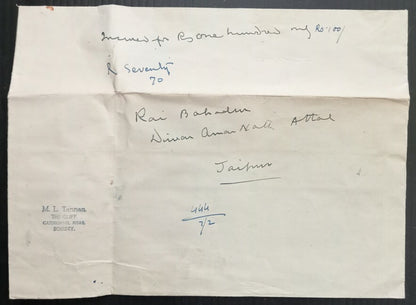 Insured for Rs one hundred only Rs 100/
R Seventy
70
Rai Bahadur
Diwan Amar Nath Attal
Jaipur
M. L. Tannan,
THE CLIFF,
BOMBAY.
444
7/2